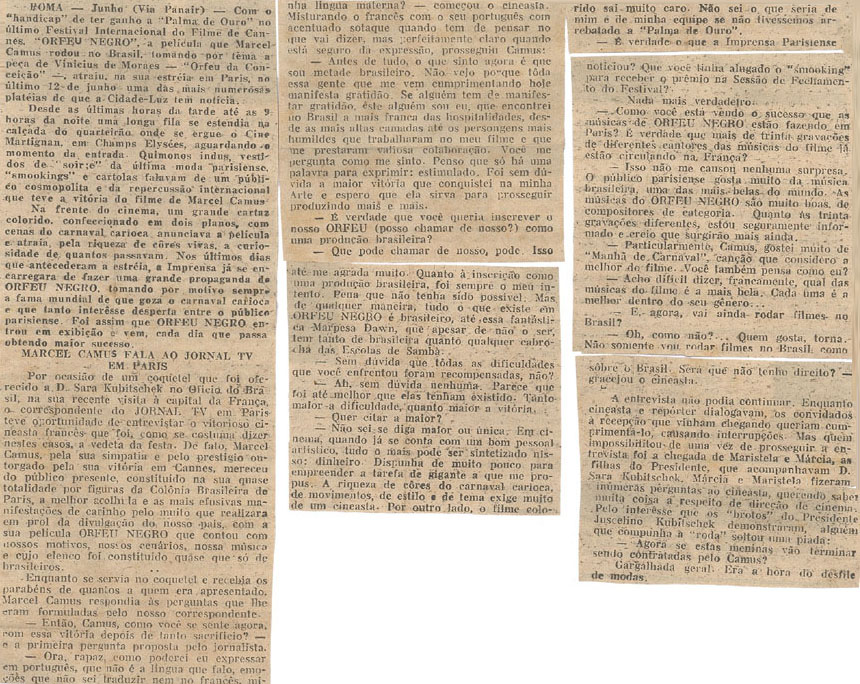 ROMA — Junho (Via Panair) — Com o
"handicap" de ter ganho a "Palma de Ouro" no
último Festival Internacional do Filme de Can-
nes, "ORFEU NEGRO", a película que Marcel
Camus rodou no Brasil, tomando por tema a
peça de Vinicius de Moraes — "Orfeu da Con-
ceição" —, atraiu, na sua estréia em Paris, no
último 12 de junho uma das mais numerosas
platéias de que a Cidade-Luz tem notícia.
Desde as últimas horas da tarde até as 9
horas da noite uma longa fila se estendia na
calçada do quarteirão onde se ergue o Cine
Martignan, em Champs Elysées, aguardando o
momento da entrada. Quimonos indus, vesti-
dos de "soir:e" da última moda parisiense,
"smookings" e cartolas falavam de um públi-
co cosmopolita e da repercussão internacional
que teve a vitória do filme de Marcel Camus
Na frente do cinema, um grande cartaz
colorido, confeccionado em dois planos, com
cenas do carnaval carioca, anunciava a película
e atraía, pela riqueza de côres vivas, a curio-
sidade de quantos passavam. Nos últimos dias
que antecederam a estréia, a Imprensa já se en-
carregara de fazer uma grande propaganda de
ORFEU NEGRO, tomando por motivo sempre
a fama mundial de que goza o carnaval carioca
e que tanto interêsse desperta entre o público
parisiense. Foi assim que ORFEU NEGRO en-
trou em exibição e vem, cada dia que passa
obtendo maior sucesso.
MARCEL CAMUS FALA AO JORNAL TV
EM PARIS
Por ocasião de um coquetel que foi ofe-
recido a D. Sara Kubitschek no Ofício do Bra-
sil, na sua recente visita à capital da França,
o correspondente do JORNAL TV em Paris
teve oportunidade de entrevistar o vitorioso ci-
neasta francês que foi, como se costuma dizer
nestes casos, a vedeta da festa. De fato, Marcel
Camus, pela sua simpatia e pelo prestígio ou-
torgado pela sua vitória em Cannes, mereceu
do público presente, constituído na sua quase
totalidade por figuras da Colônia Brasileira de
Paris, a melhor acolhida e as mais efusivas ma-
nifestações de carinho pelo muito que realizara
em prol da divulgação do nosso país, com a
sua película ORFEU NEGRO que contou com
nossos motivos, nossos cenários, nossa música
e cujo elenco foi constituído quase que só de
brasileiros.
Enquanto se servia no coquetel e recebia os
parabéns de quantos a quem era apresentado,
Marcel Camus respondia às perguntas que lhe
eram formuladas pelo nosso correspondente.
— Então, Camus, como você se sente agora,
com essa vitória depois de tanto sacrifício? —
e a primeira pergunta proposta pelo jornalista.
— Ora, rapaz, como poderei eu expressar
em português, que não é a língua que falo, emo-
ções que não sei traduzir nem no francês, mi-
nha língua materna? — começou o cineasta.
Misturando o francês com o seu português com
acentuado sotaque quando tem de pensar no
que vai dizer, mas perfeitamente claro quando
está seguro da expressão, prosseguiu Camus:
— Antes de tudo, o que sinto agora é que
sou metade brasileiro. Não vejo porque tôda
essa gente que me vem cumprimentando hoje
manifesta gratidão. Se alguém tem de manifes-
tar gratidão, êste alguém sou eu, que encontrei
no Brasil a mais franca das hospitalidades, des-
de as mais altas camadas até os personagens mais
humildes que trabalharam no meu filme e que
me prestaram valiosa colaboração. Você me
pergunta como me sinto. Penso que só há uma
palavra para exprimir: estimulado. Foi sem dú-
vida a maior vitória que conquistei na minha
Arte e espero que ela sirva para prosseguir
produzindo mais e mais.
— É verdade que você queria inscrever o
nosso ORFEU (posso chamar de nosso?) como
uma produção brasileira?
— Que pode chamar de nosso, pode. Isso
até me agrada muito. Quanto à inscrição como
uma produção brasileira, foi sempre o meu in-
tento. Pena que não tenha sido possível. Mas,
de qualquer maneira, tudo o que existe em
ORFEU NEGRO é brasileiro, até essa fantásti-
ca Marpesa Dawn, que apesar de não o ser,
tem tanto de brasileira quanto qualquer cabro-
cha das Escolas de Samba.
— Sem dúvida que tôdas as dificuldades
que você enfrentou foram recompensadas, não?
— Ah, sem dúvida nenhuma. Parece que
foi até melhor que elas tenham existido. Tanto
maior a dificuldade, quanto maior a vitória.
— Quer citar a maior?
— Não sei se diga maior ou única. Em ci-
nema, quando já se conta com um bom pessoal
artístico, tudo o mais pode ser sintetizado nis-
so: dinheiro. Dispunha de muito pouco para
empreender a tarefa de gigante a que me pro-
pus. A riqueza de côres do carnaval carioca,
de movimentos, de estilo e de tema exige muito
de um cineasta. Por outro lado, o filme colo-
rido sai muito caro. Não sei o que seria de
mim e de minha equipe se não tivéssemos ar-
rebatado a "Palma de Ouro".
— É verdade o que a Imprensa Parisiense
noticiou? Que você tinha alugado o "smooking"
para receber o prêmio na Sessão de Fechamen-
to do Festival?
— Nada mais verdadeiro.
— Como você está vendo o sucesso que as
músicas de ORFEU NEGRO estão fazendo em
Paris? É verdade que mais de trinta gravações
de diferentes cantores das músicas do filme já
estão circulando na França?
— Isso não me causou nenhuma surpresa.
O público parisiense gosta muito da música
brasileira, uma das mais belas do mundo. As
músicas do ORFEU NEGRO são muito boas, de
compositores de categoria. Quanto às trinta
gravações diferentes, estou seguramente infor-
mado e creio que surgirão mais ainda.
— Particularmente, Camus, gostei muito de
"Manhã de Carnaval", canção que considero a
melhor do filme. Você também pensa como eu?
— Acho difícil dizer, francamente, qual das
músicas do filme é a mais bela. Cada uma é a
melhor dentro do seu gênero...
— E, agora, vai ainda rodar filmes no
Brasil?
— Oh, como não?... Quem gosta, torna.
Não somente vou rodar filmes no Brasil, como
sôbre o Brasil. Será que não tenho direito? —
gracejou o cineasta.
A entrevista não podia continuar. Enquanto
cineasta e repórter dialogavam, os convidados
à recepção que vinham chegando queriam cum-
primentá-lo, causando interrupções. Mas quem
impossibilitou de uma vez de prosseguir a en-
trevista foi a chegada de Maristela e Márcia, as
filhas do Presidente, que acompanhavam D.
Sara Kubitschek. Márcia e Maristela fizeram
inúmeras perguntas ao cineasta, querendo saber
muita coisa a respeito de direção de cinema.
Pelo interêsse que os "brotos" do Presidente
Juscelino Kubitschek demonstraram, alguém
que compunha a "roda" soltou uma piada:
— Agora se estas meninas vão terminar
sendo contratadas pelo Camus?
Gargalhada geral. Era a hora do desfile
de modas.